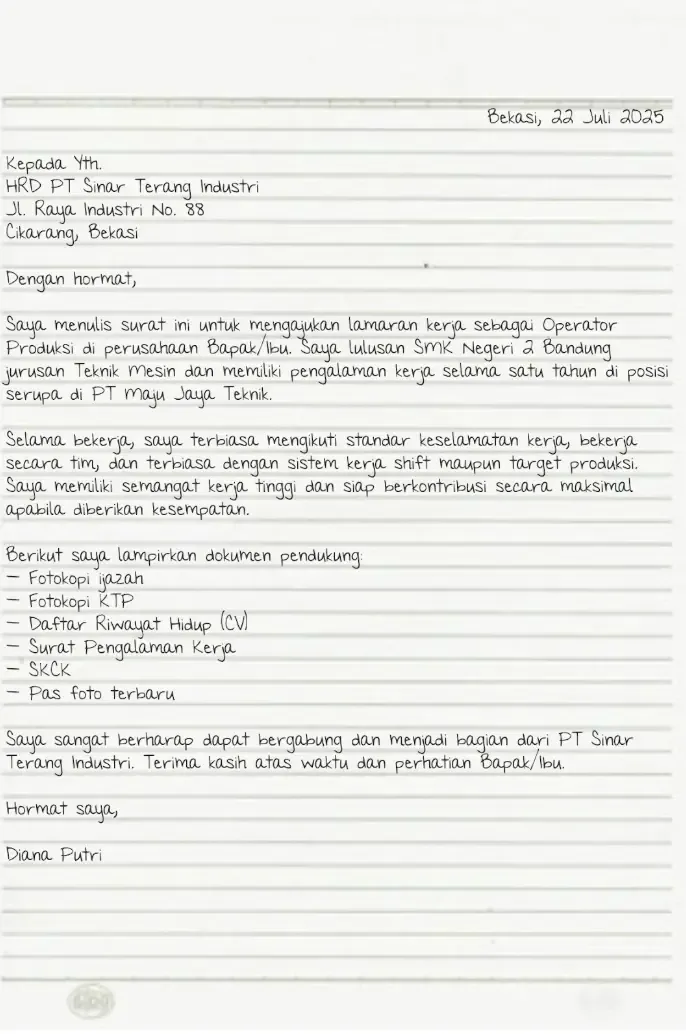 Bekasi, 22 Juli 2025
Kepada Yth.
HRD PT Sinar Terang Industri
Jl. Raya Industri No. 88
Cikarang, Bekasi
Dengan hormat,
Saya menulis surat ini untuk mengajukan lamaran kerja sebagai Operator
Produksi di perusahaan Bapak/Ibu. Saya lulusan SMK Negeri 2 Bandung
jurusan Teknik Mesin dan memiliki pengalaman kerja selama satu tahun di posisi
serupa di PT Maju Jaya Teknik.
Selama bekerja, saya terbiasa mengikuti standar keselamatan kerja, bekerja
secara tim, dan terbiasa dengan sistem kerja shift maupun target produksi.
Saya memiliki semangat kerja tinggi dan siap berkontribusi secara maksimal
apabila diberikan kesempatan.
Berikut saya lampirkan dokumen pendukung:
- Fotokopi ijazah
- Fotokopi KTP
- Daftar Riwayat Hidup (CV)
- Surat Pengalaman Kerja
- SKCK
- Pas foto terbaru
Saya sangat berharap dapat bergabung dan menjadi bagian dari PT Sinar
Terang Industri. Terima kasih atas waktu dan perhatian Bapak/Ibu.
Hormat saya,
Diana Putri